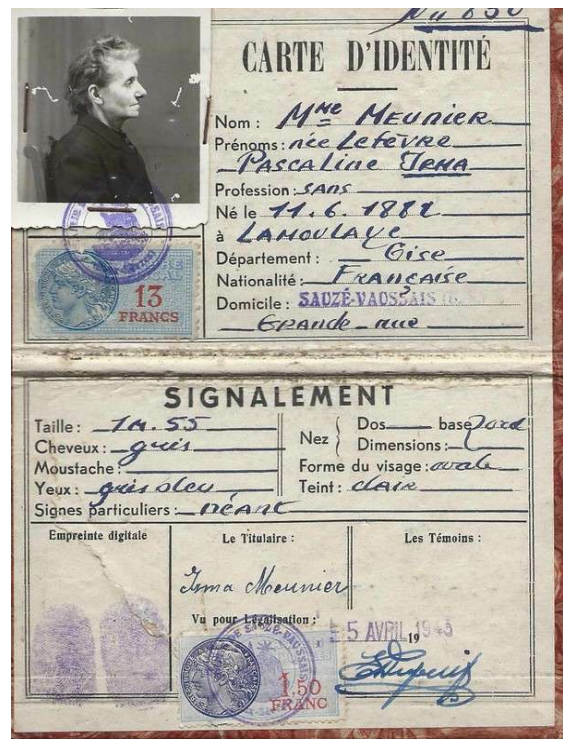 No 630
CARTE D'IDENTITÉ
Nom : Mme MEUNIER
Prénoms : née Lefèvre
Pascaline IRMA
Profession : sans
Né le 11.6.1882
à LAMOULAYE
Département : Oise
Nationalité : Française
Domicile : SAUZÉ-VAUSSAIS
Grande rue
13
FRANCS
SIGNALEMENT
Taille : 1m.55
Cheveux : gris
Moustache :
Yeux : gris bleu
Signes particuliers : néant
Nez { Dos base
Dimensions :
Forme du visage : ovale
Teint : clair
Empreinte digitale
Le Titulaire :
Les Témoins :
Irma Meunier
Vu pour Légalisation :
5 AVRIL 1943
19
SAUZÉ-VAUSSAIS
1.50
FRANC